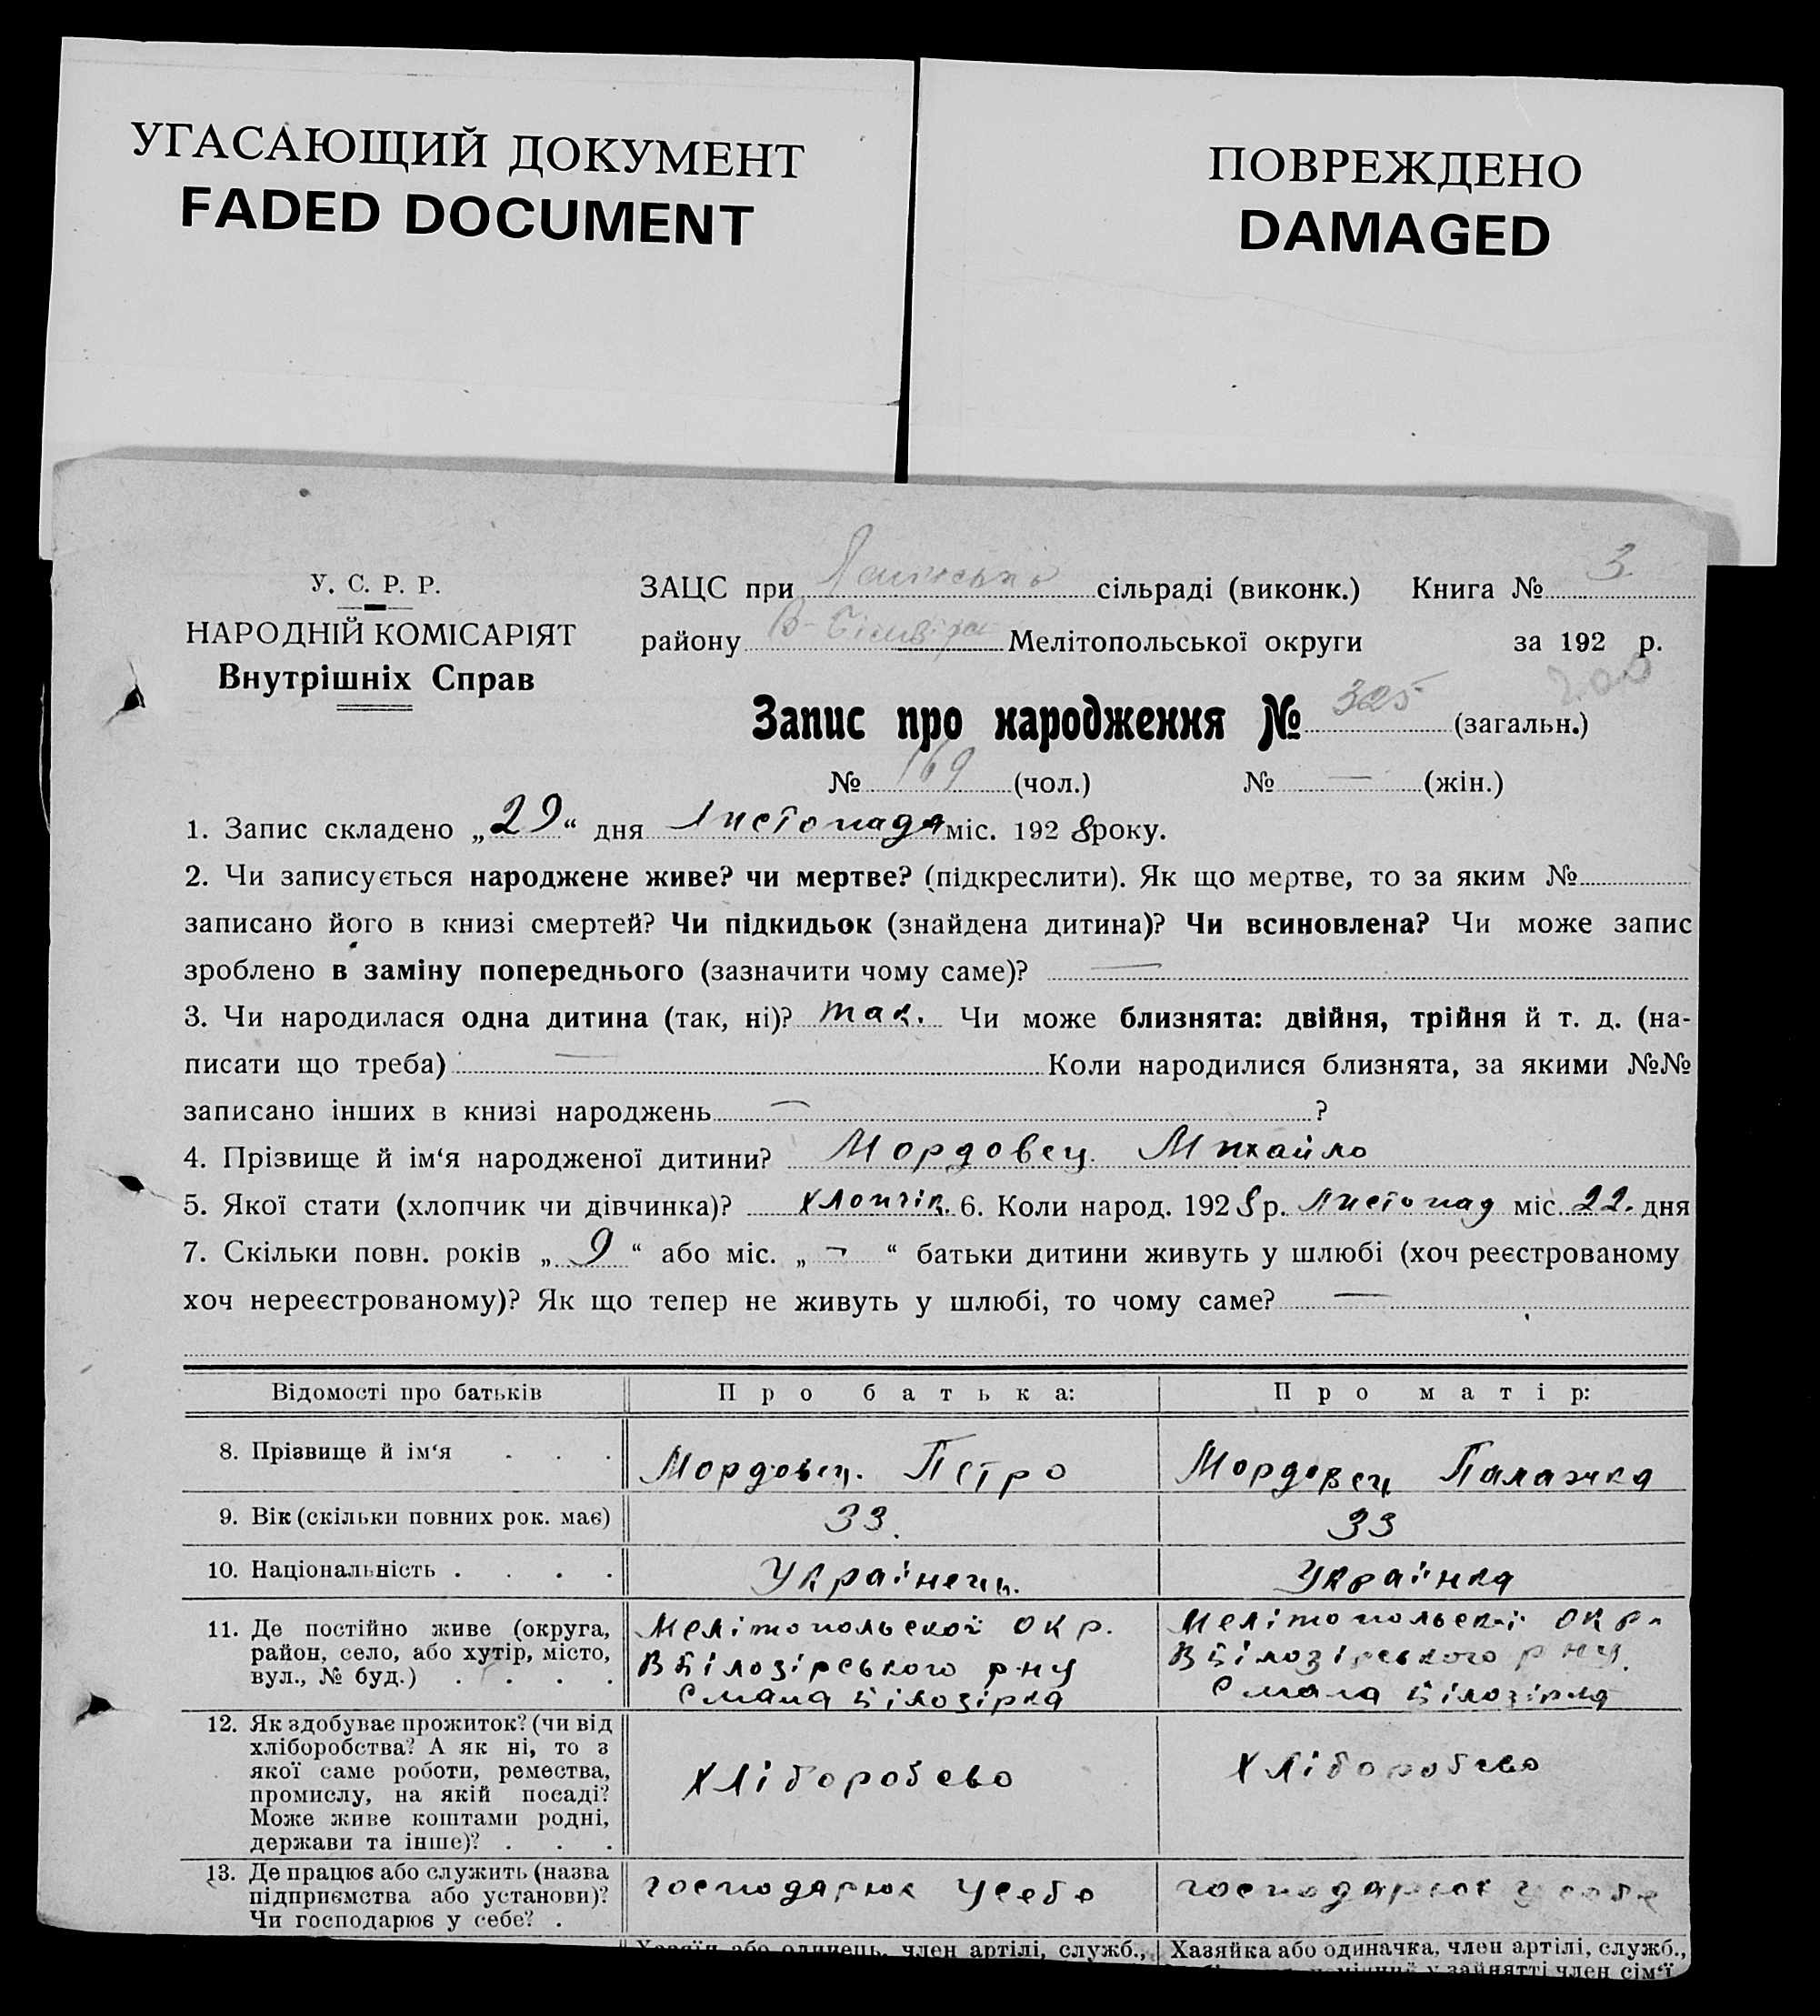 УГАСАЮЩИЙ ДОКУМЕНТ
FADED DOCUMENT
ПОВРЕЖДЕНО
DAMAGED
У. С. Р. Р.
НАРОДНІЙ КОМІСАРІЯТ
Внутрішніх Справ
ЗАЦС при сільраді (виконк.) Книга № 3
району Мелітопольської округи за 192 р.
Запис про народження № 325 (загальн.)
№ 169 (чол.) № — (жін.)
1. Запис складено „29“ дня Листопада міс. 1928 року.
2. Чи записується народжене живе? чи мертве? (підкреслити). Як що мертве, то за яким №
записано його в книзі смертей? Чи підкидьок (знайдена дитина)? Чи всиновлена? Чи може запис
зроблено в заміну попереднього (зазначити чому саме)? —
3. Чи народилася одна дитина (так, ні)? так. Чи може близнята: двійня, трійня й т. д. (на-
писати що треба) — Коли народилися близнята, за якими №№
записано інших в книзі народжень — ?
4. Прізвище й ім‘я народженої дитини? Мордовец Михайло
5. Якої стати (хлопчик чи дівчинка)? хлопчік. 6. Коли народ. 1928 р. Листопад міс. 22. дня
7. Скільки повн. років „ 9 “ або міс. „ — “ батьки дитини живуть у шлюбі (хоч реєстрованому
хоч нереєстрованому)? Як що тепер не живуть у шлюбі, то чому саме? —
Відомості про батьків Про батька: Про матір:
8. Прізвище й ім‘я . . . Мордовец. Петро Мордовец Палажка
9. Вік (скільки повних рок. має) 33. 33
10. Національність . . . . Українець. Українка
11. Де постійно живе (округа,
район, село, або хутір, місто,
вул., № буд.) . . . .
Мелітопольскої окр.
ВБілозірського р-ну
с мала Білозірка
Мелітопольскої окр
ВБілозірського рну.
с мала Білозірка
12. Як здобуває прожиток? (чи від
хліборобства? А як ні, то з
якої саме роботи, ремества,
промислу, на якій посаді?
Може живе коштами родні,
держави та інше)? . . .
хліборобсво
хліборобсво
13. Де працює або служить (назва
підприємства або установи)?
Чи господарює у себе? .
господарюк усебе
господарюк усебе
Хазяїн або одинець, член артілі, служб.,
Хазяйка або одиначка, член артілі, служб.,
у зайнятті член сім‘ї